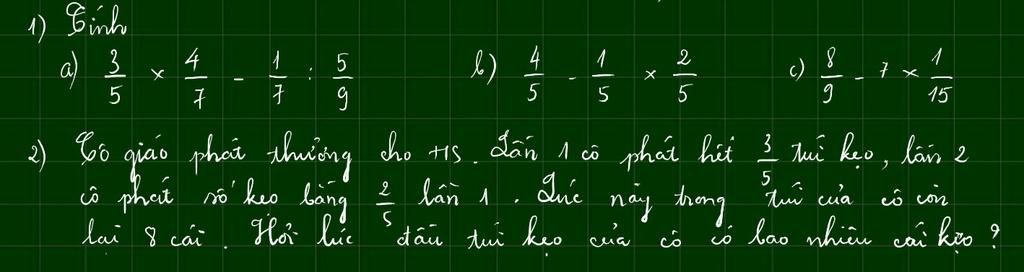 1) Tính
a) 3/5 × 4/7 - 1/7 : 5/9 b) 4/5 - 1/5 × 2/5 c) 8/9 - 7 × 1/15
2) Cô giáo phát thưởng cho HS. Lần 1 cô phát hết 3/5 túi kẹo, lần 2
cô phát số kẹo bằng 2/5 lần 1. Lúc này trong túi của cô còn
lại 8 cái. Hỏi lúc đầu túi kẹo của cô có bao nhiêu cái kẹo?